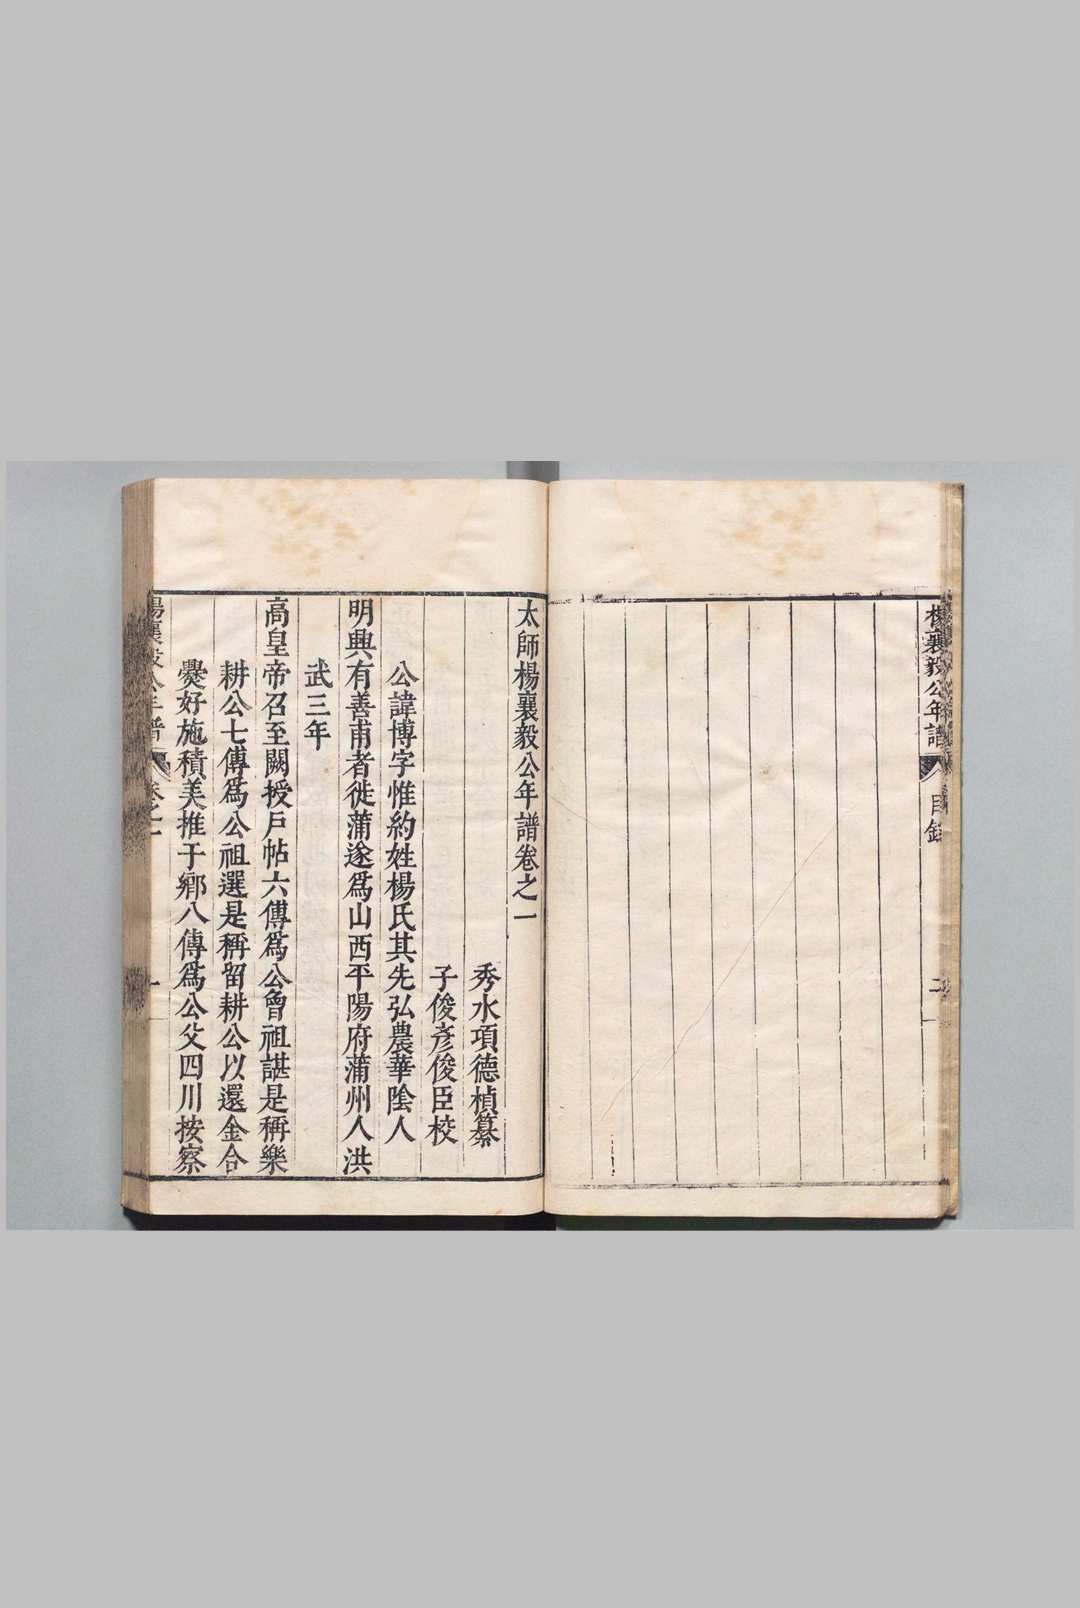 楊襄毅公年譜
目録
二
太師楊襄毅公年譜卷之一
秀水項德楨纂
子俊彥俊臣校
公諱博字惟約姓楊氏其先弘農華陰人
明興有善甫者徙蒲遂爲山西平陽府蒲州人洪
武三年
高皇帝召至闕授戶帖六傳爲公曾祖諶是稱樂
耕公七傳爲公祖選是稱留耕公以還金合
爨好施積美推于鄉八傳爲公父四川按察
楊襄毅公年譜
卷之一
一